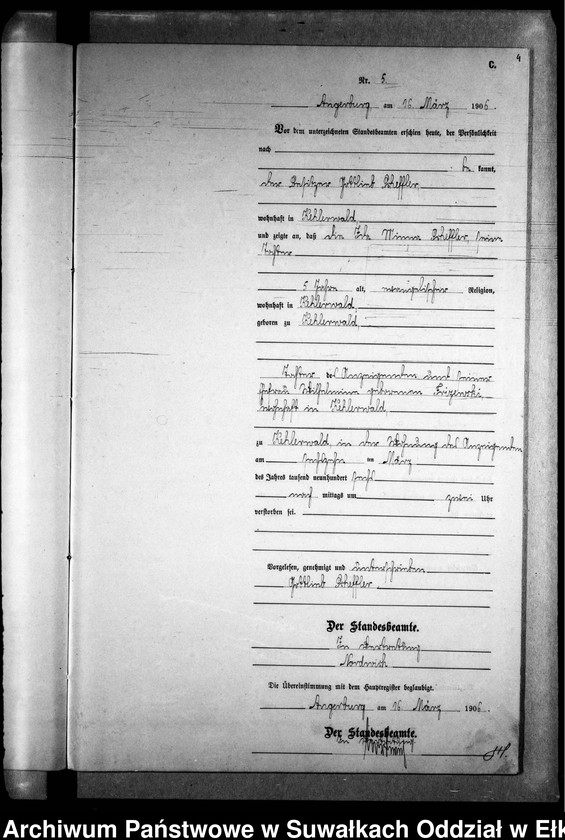 4
C.
Nr. 5.
Angerburg am 16. März 1906.
Vor dem unterzeichneten Standesbeamten erschien heute, der Persönlichkeit
nach
be kannt,
der Besitzer Gottlieb Scheffler
wohnhaft in Kehlerwald,
und zeigte an, daß die Ida Minna Scheffler, seine
Tochter
5 Jahre alt, evangelischer Religion,
wohnhaft in Kehlerwald,
geboren zu Kehlerwald,
Tochter des Anzeigenden und seiner
Ehefrau Wilhelmine geborenen
wohnhaft in Kehlerwald
zu Kehlerwald, in der Wohnung des Anzeigenden
am sechszehn ten März
des Jahres tausend neunhundert sechs
nach mittags um zwei Uhr
verstorben sei.
Vorgelesen, genehmigt und unterschrieben
Gottlieb Scheffler
Der Standesbeamte.
In Vertretung
Nordwich
Die Übereinstimmung mit dem Hauptregister beglaubigt.
Angerburg am 16. März 1906.
Der Standesbeamte.
In Vertretung
Archiwum Państwowe w Suwałkach Oddział w Ełk